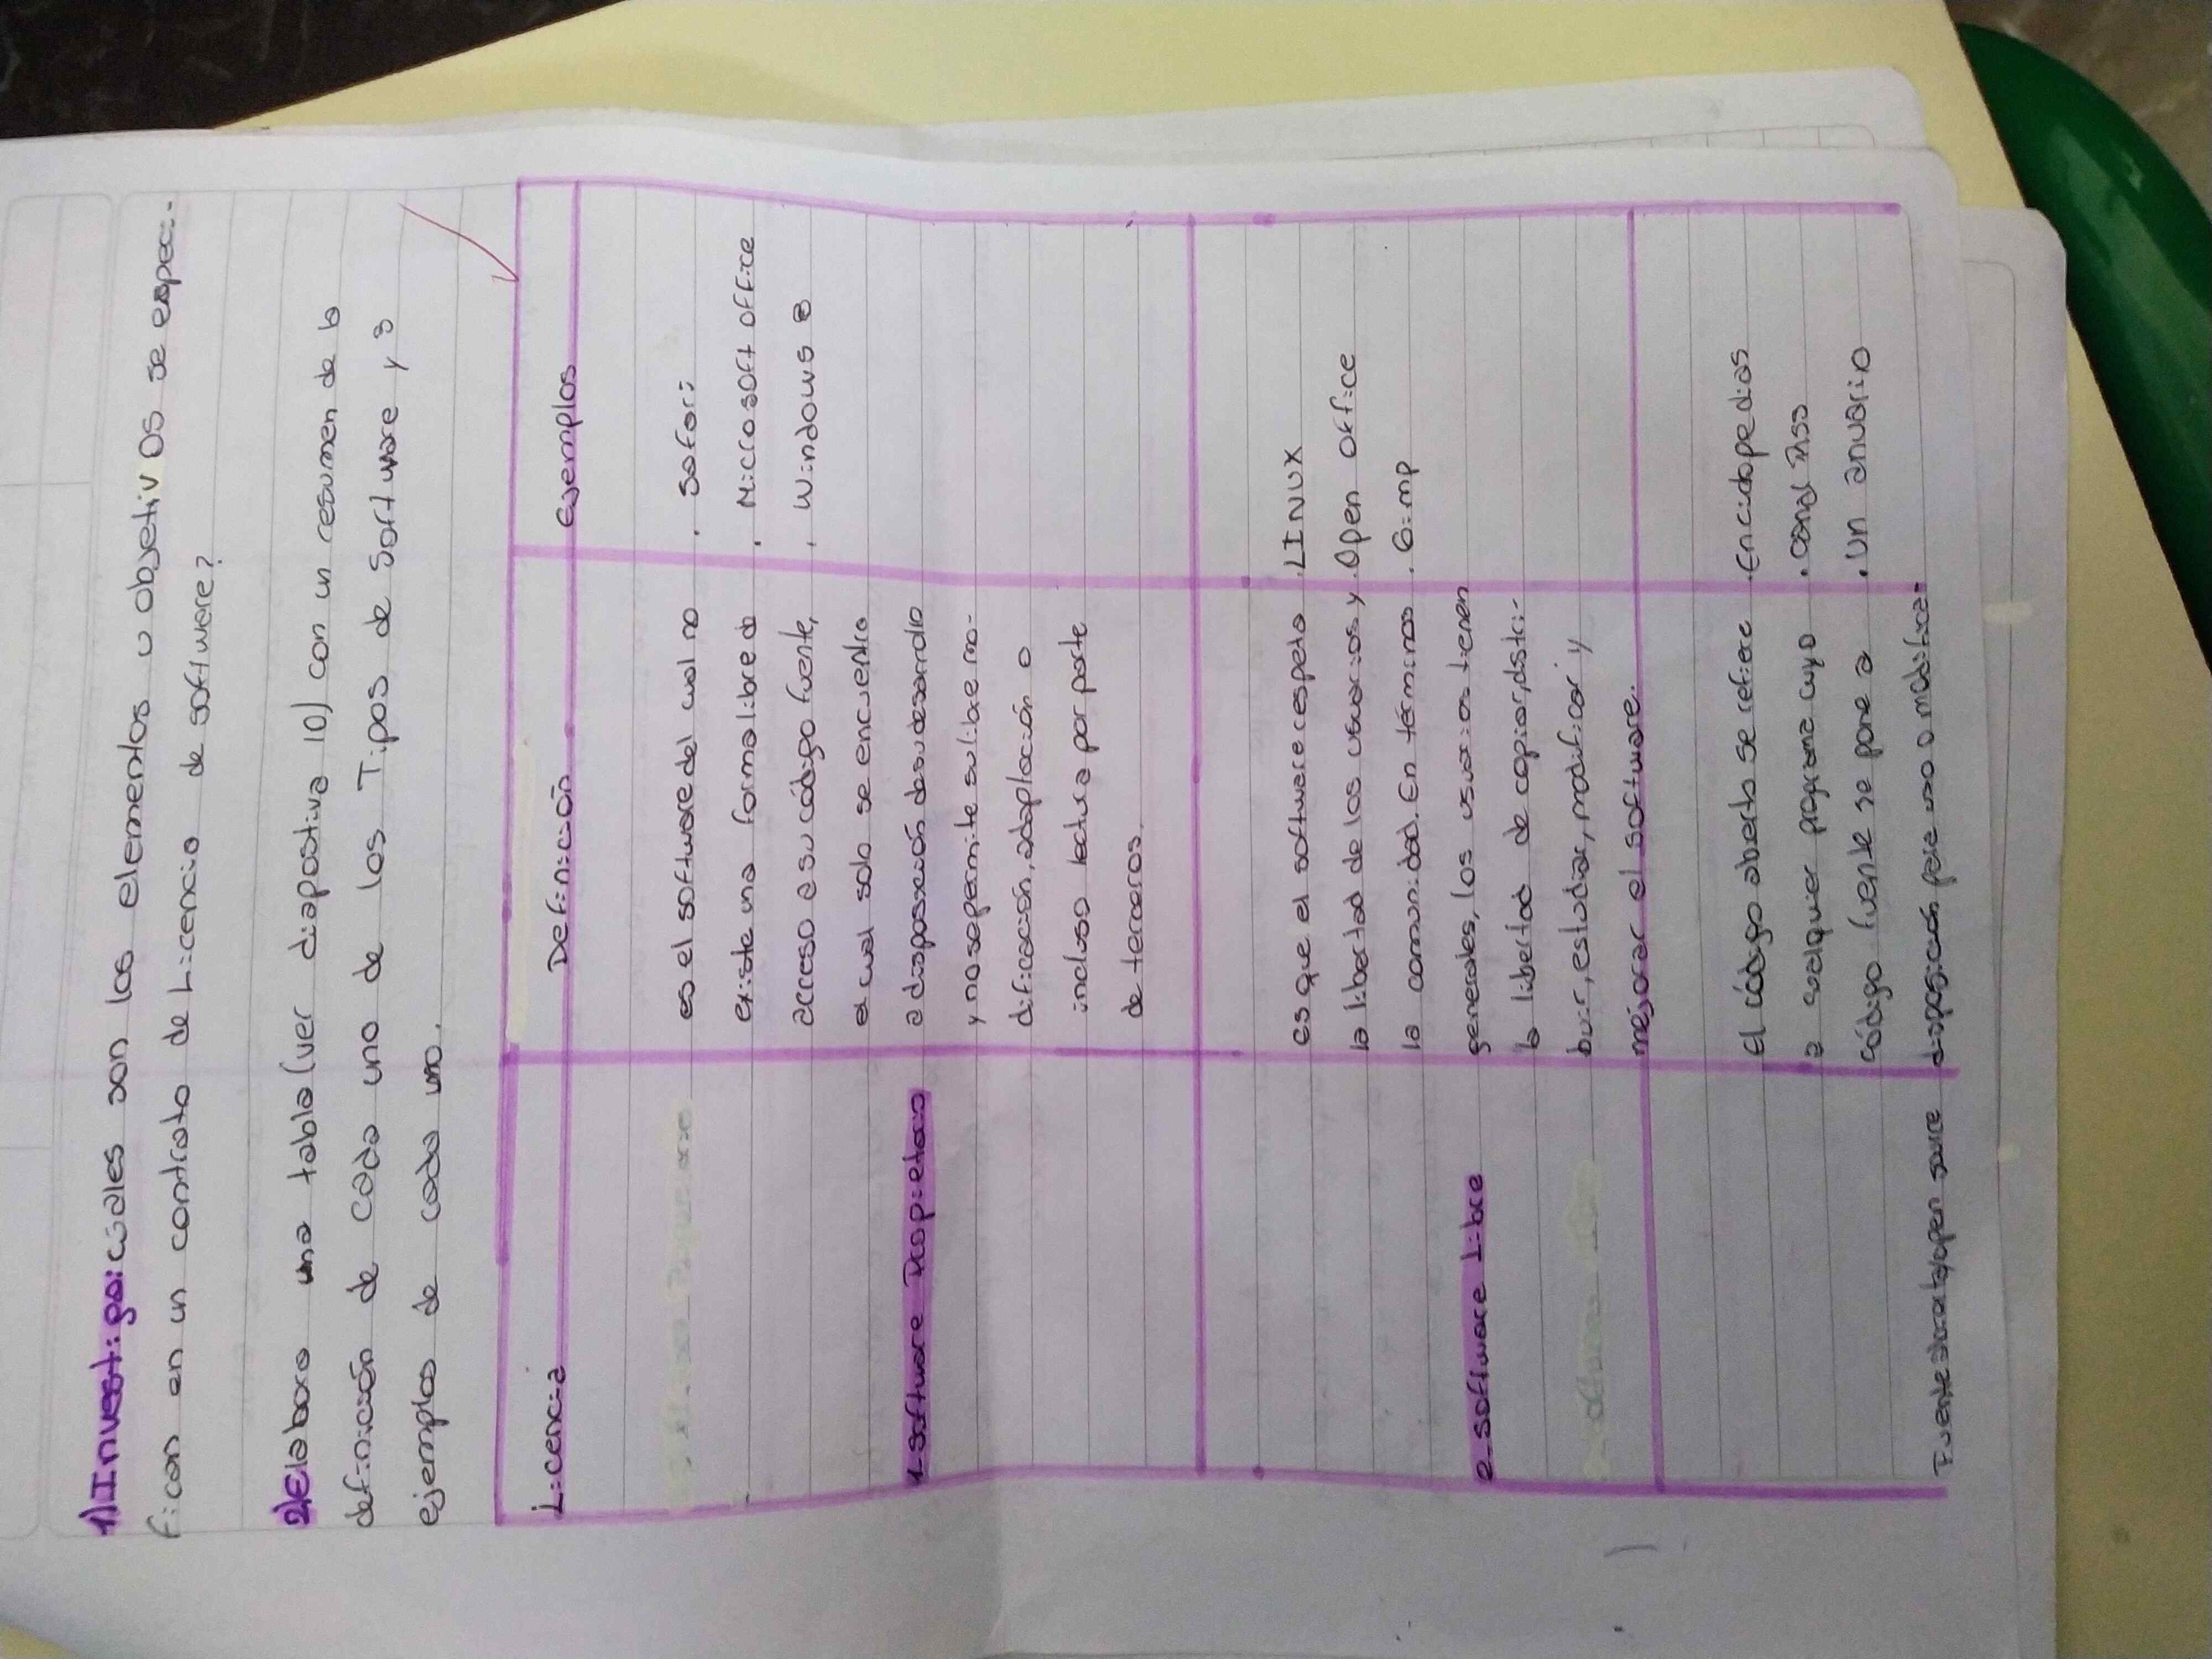 1) Investiga: cúales son los elementos u objetivos se especi-
fican en un contrato de Licencia de software?
2) Elabora una tabla (ver diapositiva 10) con un resumen de la
definición de cada uno de los Tipos de Software y 3
ejemplos de cada uno.
Licencia Definición Ejemplos
es el software del cual no
existe una forma libre de
acceso a su código fuente,
el cual solo se encuentra
a disposición de su desarrollo
y no se permite su libre mo-
dificación, adaptación o
incluso lectura por parte
de terceros.
. Safari
. Microsoft office
. Windows 8
1-Software Propietario
es que el software respeta
la libertad de los usuarios y
la comunidad. En términos
generales, los usuarios tienen
la libertad de copiar, distri-
buir, estudiar, modificar y
mejorar el software.
. LINUX
. Open Office
. Gimp
2-Software Libre
El código abierto se refiere
a cualquier programa cuyo
código fuente se pone a
disposición para uso o modifica-
. Enciclopedias
. canal RSS
. Un anuario
Fuente abierta/open source